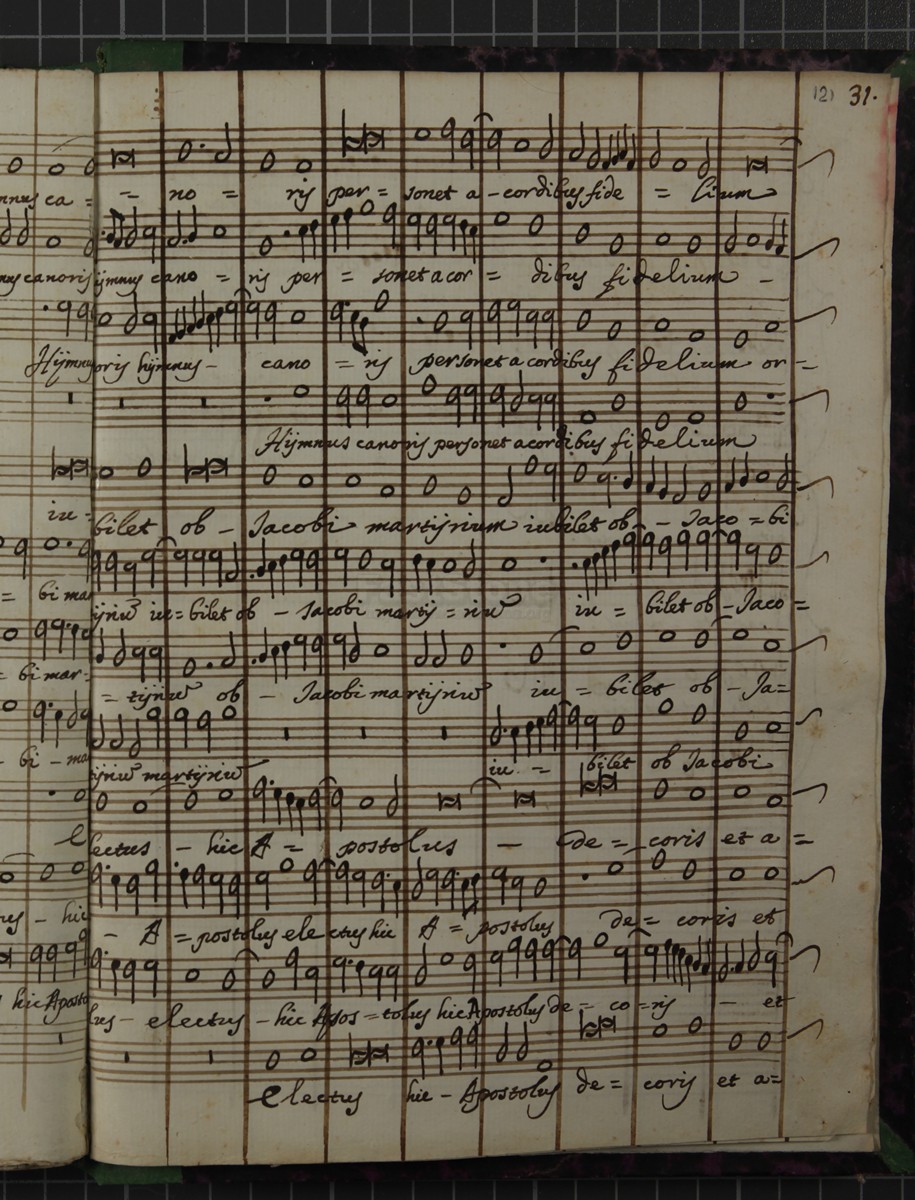 121 31.
nus ca = - no = ris per = sonet a - cordibus fide = lium
nus canoris ijmnus cano = ris per = sonet a cor = dibus fidelium -
Hijmnus oris hijmnus - cano = ris personet a cordibus fidelium or =
Hijmnus canoris personet a cordibus fidelium
iu = bilet ob - Jacobi martijrium iubilet ob - Jaco = bi
= bi ma ijriu iu = bilet ob - Jacobi martij = riu iu = bilet ob - Jaco =
= bi mar = = tijriu ob - Jacobi martijriu iu = bilet ob - Ja =
- bi - ma ijriu martijriu iu = bilet ob Jacobi
E lectus - hic A = postolus - de = coris et a =
us - hic - A = postolus electus hic A = postolus de = coris et
hic Aposto lus - electus - hic Apos = tolus hic Apostolus de = co = ris - et
Electus hic - Apostolus de = coris et a =